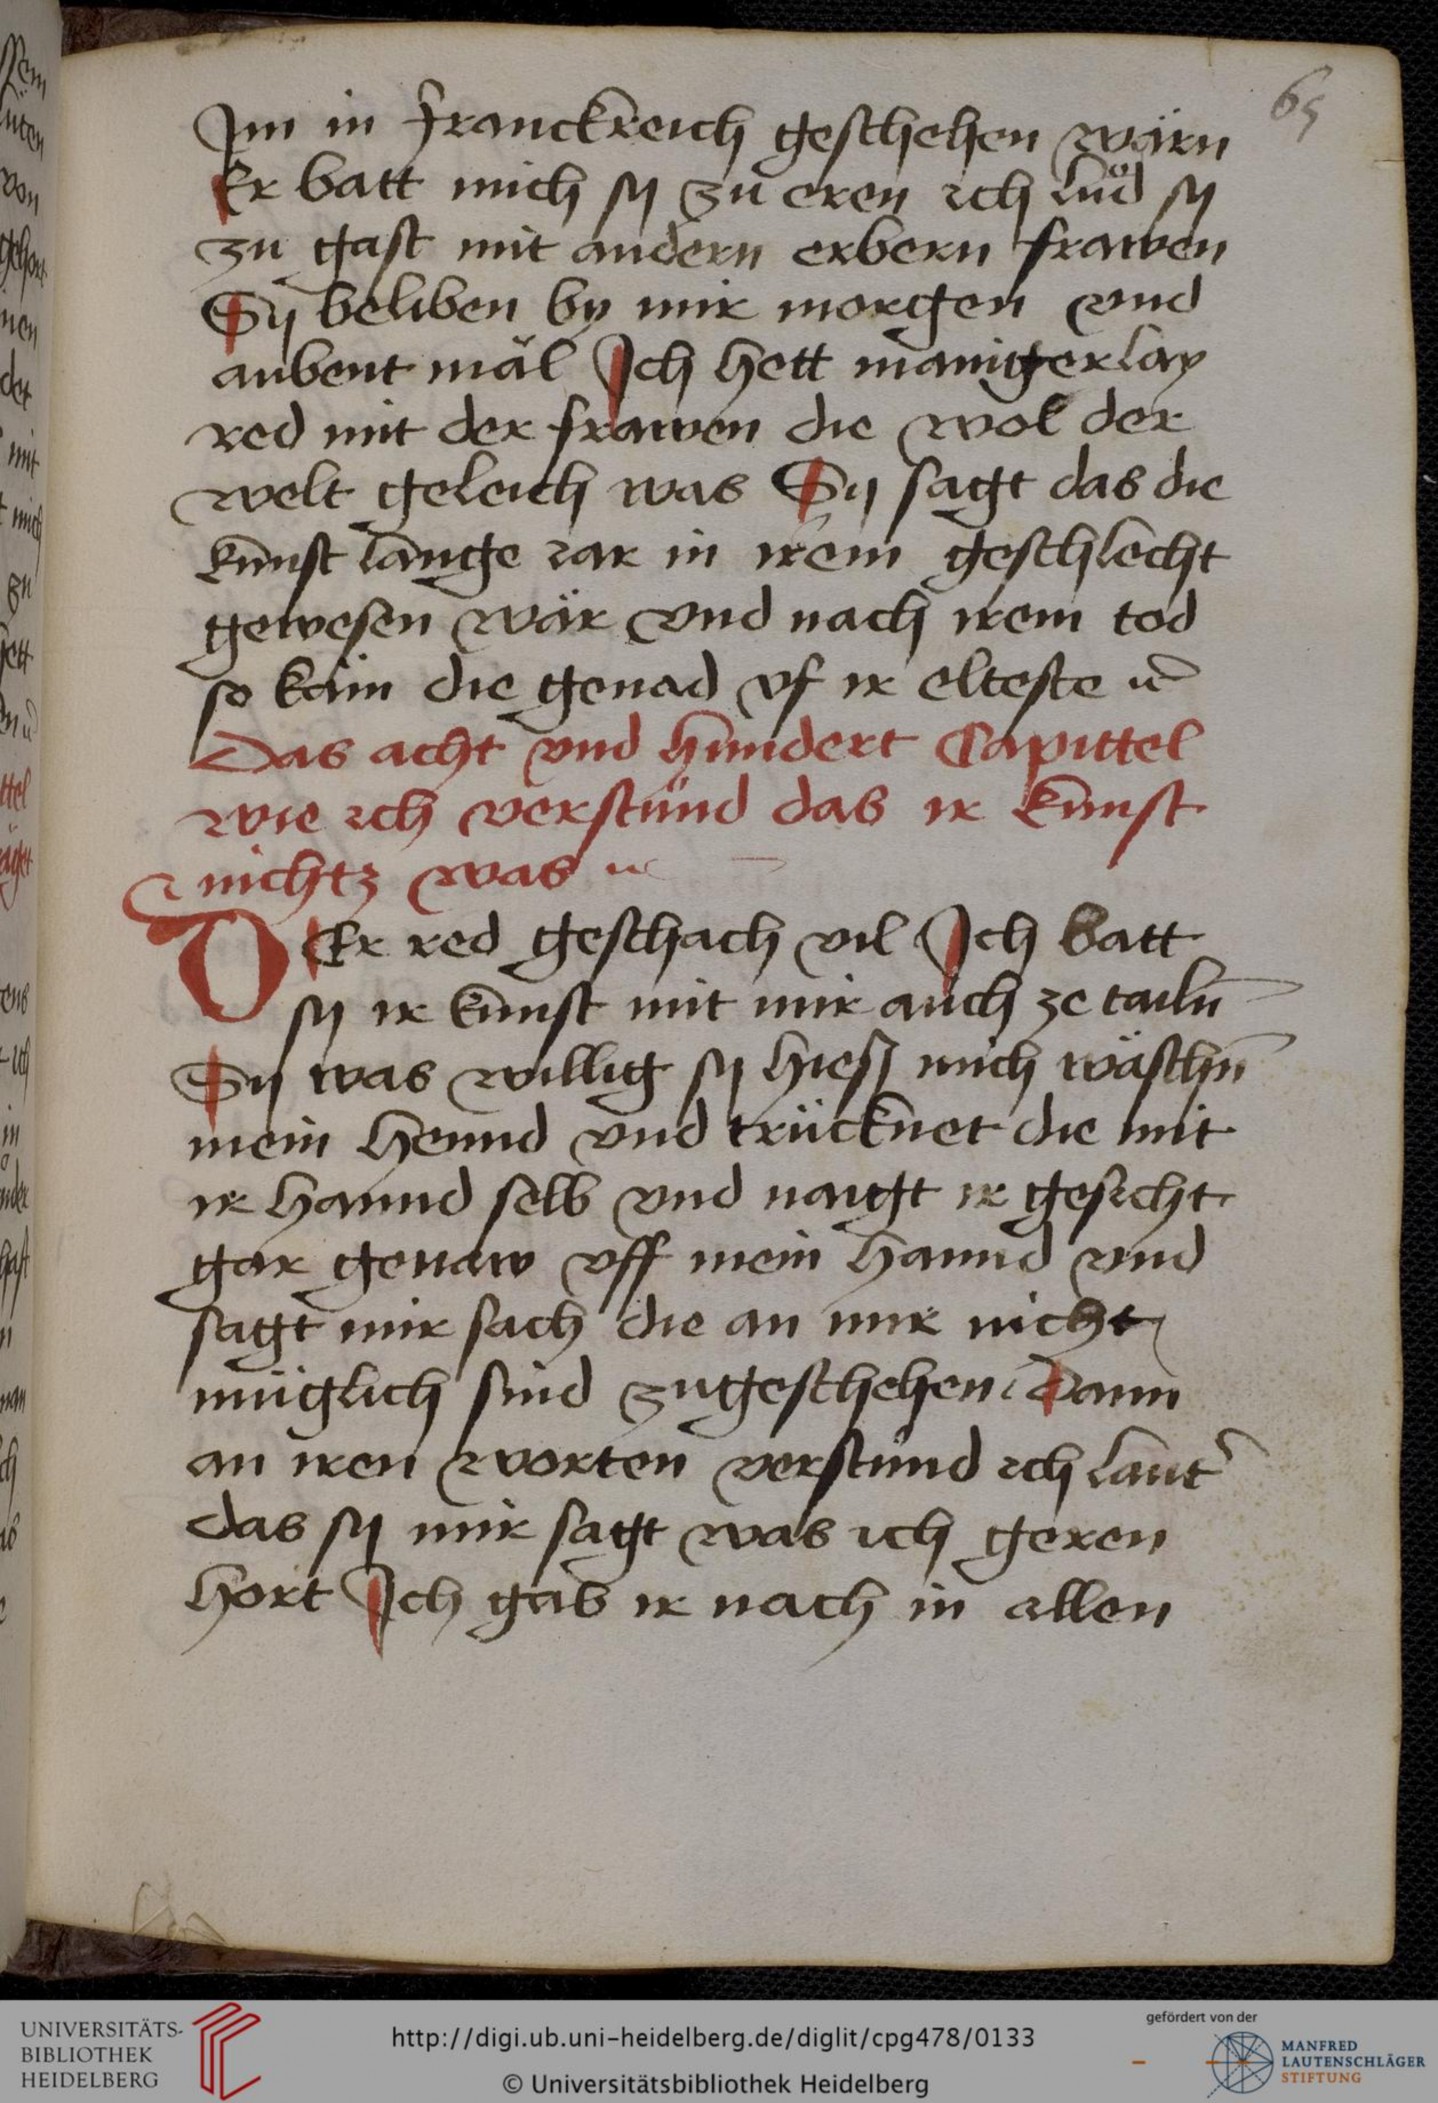 65
Im in Franckreich geschehen wärn
Er batt mich sy zu eren ich lůd sy
zu gast mit andern erbern frawen
Sy beliben by mir morgen vnd
aubent mäl Ich hett manigerlay
red mit der frawen die wol der
welt geleich was Sy sagt das die
kunst lange iar in irem geschlecht
gewesen wär vnd nach irem tod
so käm die genad vf ir elteste ⁊c̄
Das acht vnd hundert Capittel
wie ich verstünd das ir kunst
nichtz was ⁊c
DEr red geschach vil Ich batt
sy ir kunst mit mir auch ze tailn̄
Sy was willig sy hieß mich wäschn̄
mein hennd vnd trücknet die mit
ir hannd selb vnd naigt ir gesicht
gar genaw vff mein hannd vnd
sagt mir sach die an mir nicht
müglich sind zugeschehen Dann
an iren worten verstünd ich laut᷑
das sy mir sagt was ich geren
hort Ich gab ir nach in allen
UNIVERSITÄTS-
BIBLIOTHEK
HEIDELBERG
http://digi.ub.uni-heidelberg.de/diglit/cpg478/0133
© Universitätsbibliothek Heidelberg
gefördert von der
MANFRED
LAUTENSCHLÄGER
STIFTUNG